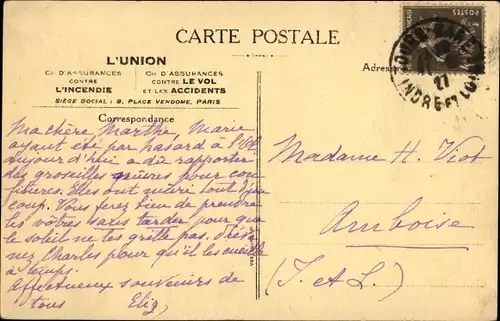 CARTE POSTALE
L'UNION
CIE D'ASSURANCES
CONTRE
L'INCENDIE
CIE D'ASSURANCES
CONTRE LE VOL
ET LES ACCIDENTS
SIÈGE SOCIAL : 9, PLACE VENDOME, PARIS
Correspondance
Adresse
POSTES
INDRE-ET-LOIRE
Ma chère Marthe, Marie
ayant été par hasard à
aujourd'hui a dû rapporter
des groseilles mûres pour con
fitures. Elles ont mûri tout d'un
coup. Vous ferez bien de prendre
les vôtres sans tarder pour que
le soleil ne les grille pas. Préve
nez Charles pour qu'il les cueille
à temps.
Affectueux souvenirs de
tous Eliz,
Madame H. Viot
Amboise
(I. et L.)